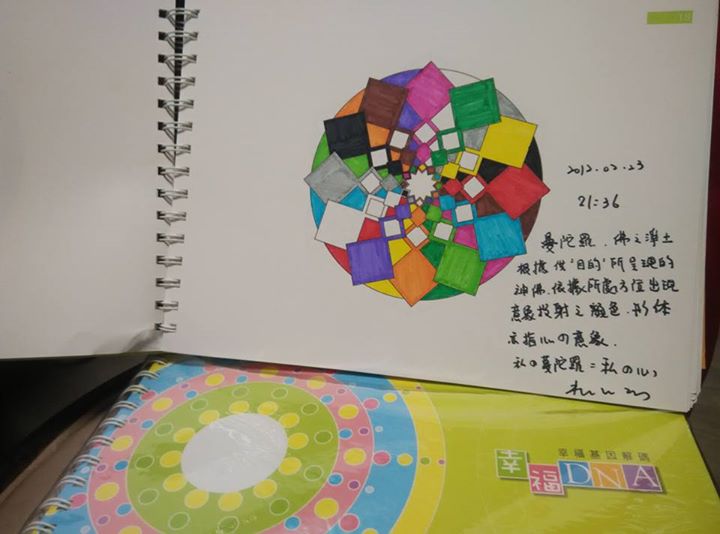 18
2012.02.23
21:36
曼陀羅．佛之淨土
根據從'目的'所呈現的
神佛．依據所處方位出現
意象投射之顏色．形体
亦指心の意象．
私の曼陀羅=私の心
幸福基因解碼
幸福DNA